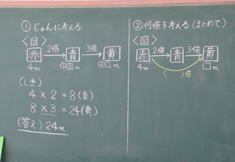 ①じゅんに考える
<図>
赤 2倍 青 3倍 黄
4m ①□m ②□m
(しき)
4×2=8(青)
8×3=24(黄)
(答え)24m
②何倍を考える(まとめて)
<図>
赤 2倍 青 3倍 黄
4m □m
( )倍